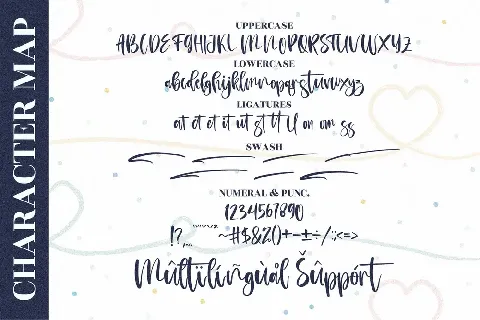 CHARACTER MAP
UPPERCASE
ABCDEFGHIJKLMNOPQRSTUVWXYZ
LOWERCASE
abcdefghijklmnopqrstuvwxyz
LIGATURES
at et ct it ut st tt ll on om ss
SWASH
NUMERAL & PUNC.
1234567890
~#$&%()+-±÷/:;<=>
Múltïlíñgùál Šûppórt